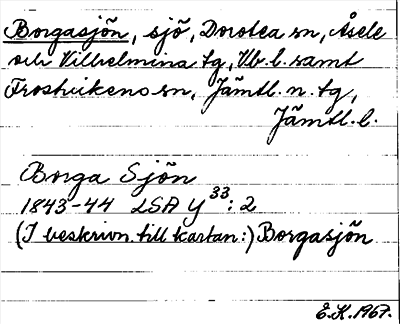 Borgasjön, sjö, Dorotea sn, Åsele
och Vilhelmina tg, Vb. l. samt
Frostvikens sn, Jämtl. n. tg,
Jämtl. l.
Borga Sjön
1843-44 LSA Y³³: 2
(I beskrivn. till kartan:) Borgasjön
E.K. 1967.